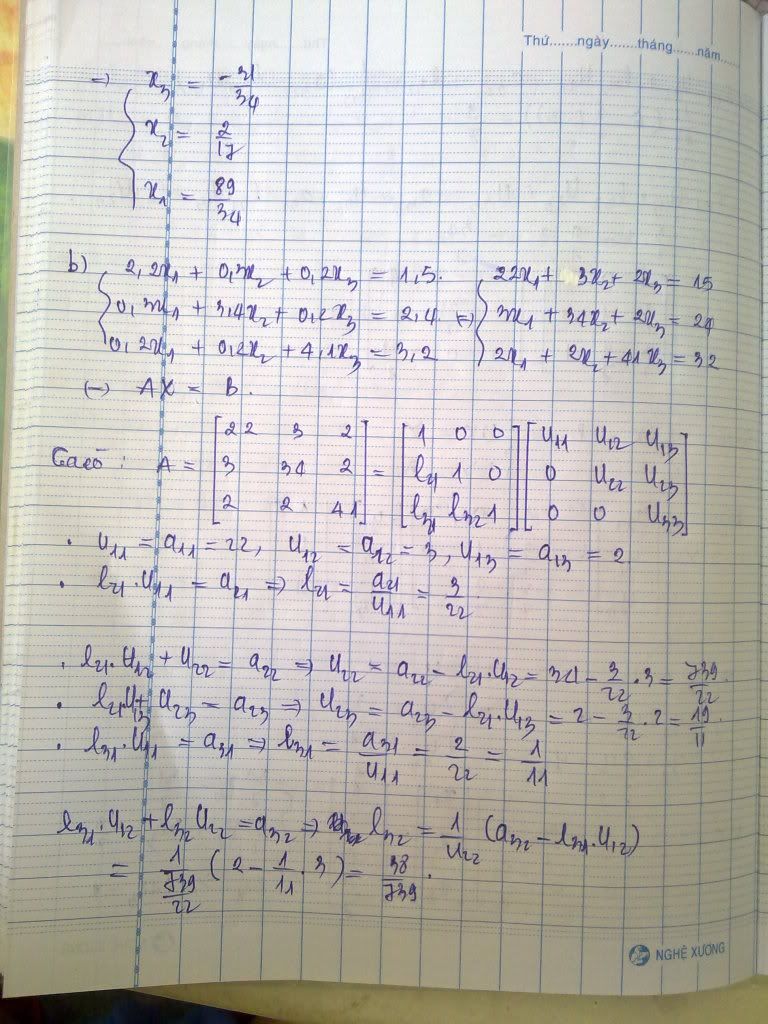 Thứ.......ngày.......tháng......năm.....
=> x₃ = -31/34
x₂ = 2/17
x₁ = 89/34.
b) { 2,2x₁ + 0,3x₂ + 0,2x₃ = 1,5. { 22x₁ + 3x₂ + 2x₃ = 15
0,3x₁ + 3,4x₂ + 0,2x₃ = 2,4. (=) 3x₁ + 34x₂ + 2x₃ = 24
0,2x₁ + 0,2x₂ + 4,1x₃ = 3,2 2x₁ + 2x₂ + 41x₃ = 32
(=) AX = B.
Ta có : A = [22 3 2; 3 34 2; 2 2 41] = [1 0 0; l₂₁ 1 0; l₃₁ l₃₂ 1] [u₁₁ u₁₂ u₁₃; 0 u₂₂ u₂₃; 0 0 u₃₃]
. u₁₁ = a₁₁ = 22, u₁₂ = a₁₂ = 3, u₁₃ = a₁₃ = 2
. l₂₁.u₁₁ = a₂₁ => l₂₁ = a₂₁/u₁₁ = 3/22.
. l₂₁.u₁₂ + u₂₂ = a₂₂ => u₂₂ = a₂₂ - l₂₁.u₁₂ = 34 - 3/22 . 3 = 739/22.
. l₂₁.u₁₃ + u₂₃ = a₂₃ => u₂₃ = a₂₃ - l₂₁.u₁₃ = 2 - 3/22 . 2 = 19/11.
. l₃₁.u₁₁ = a₃₁ => l₃₁ = a₃₁/u₁₁ = 2/22 = 1/11
l₃₁.u₁₂ + l₃₂ u₂₂ = a₃₂ => l₃₂ = 1/u₂₂ (a₃₂ - l₃₁.u₁₂)
= 1/(739/22) (2 - 1/11 . 3) = 38/739.
NGHỆ XƯƠNG